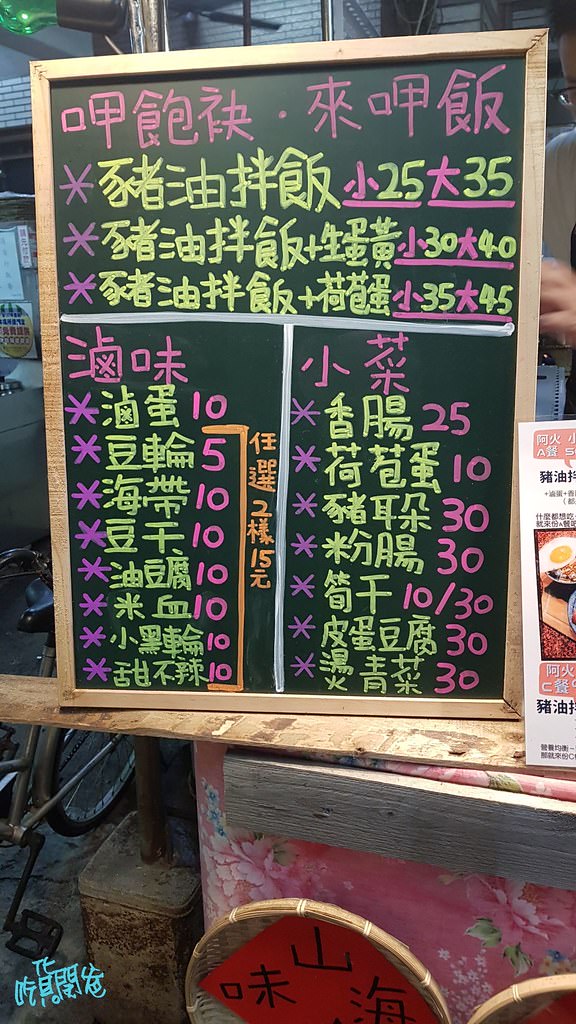 呷飽袂．來呷飯
＊豬油拌飯 小25大35
＊豬油拌飯+生蛋黃 小30大40
＊豬油拌飯+荷苞蛋 小35大45
滷味
＊滷蛋 10
＊豆輪 5
＊海帶 10
＊豆干 10
＊油豆腐 10
＊米血 10
＊小黑輪 10
＊甜不辣 10
任選2樣15元
小菜
＊香腸 25
＊荷苞蛋 10
＊豬耳朵 30
＊粉腸 30
＊筍干 10/30
＊皮蛋豆腐 30
＊燙青菜 30
阿火 小
A餐 5
豬油拌
+滷蛋+香
什麼都想吃
就來份A餐吧
阿火
C餐
豬油拌
營養均衡
那就來份C
山
味 海
吃貝閣爸